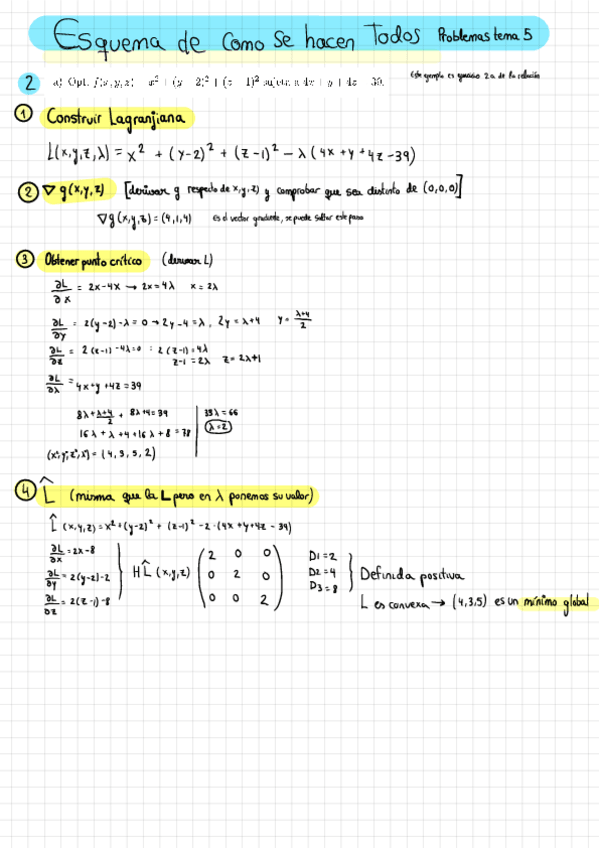 Esquema de como se hacen Todos Problemas tema 5
2 a) Opt. f(x, y, z) = x² + (y − 2)² + (z − 1)² sujeta a 4x + y + 4z = 39.
Este ejemplo es ejercicio 2a de la relación
① Construir Lagranjiana
L(x,y,z,λ) = x² + (y-2)² + (z-1)² - λ (4x+y+4z-39)
② ∇g(x,y,z) [derivar g respecto de x,y,z) y comprobar que sea distinto de (0,0,0)]
∇g(x,y,z) = (4,1,4) es el vector gradiente, se puede saltar este paso
③ Obtener punto crítico (derivar L)
∂L/∂x = 2x-4λ → 2x=4λ x=2λ
∂L/∂y = 2(y-2)-λ=0 → 2y-4=λ, 2y=λ+4 y=λ+4/2
∂L/∂z = 2(z-1)-4λ=0 : 2(z-1)=4λ
z-1=2λ z=2λ+1
∂L/∂λ = 4x+y+4z=39
8λ+λ+4/2 + 8λ+4=39 33λ=66
16λ+λ+4+16λ+8=78 λ=2
(x*,y*,z*,λ*)=(4,3,5,2)
④ L̂ (misma que la L pero en λ ponemos su valor)
L̂(x,y,z)=x²+(y-2)²+(z-1)²-2·(4x+y+4z-39)
∂L/∂x=2x-8
∂L/∂y=2(y-2)-2
∂L/∂z=2(z-1)-8
HL̂(x,y,z)
2 0 0
0 2 0
0 0 2
D1=2
D2=4
D3=8
Definida positiva
L es convexa → (4,3,5) es un mínimo global